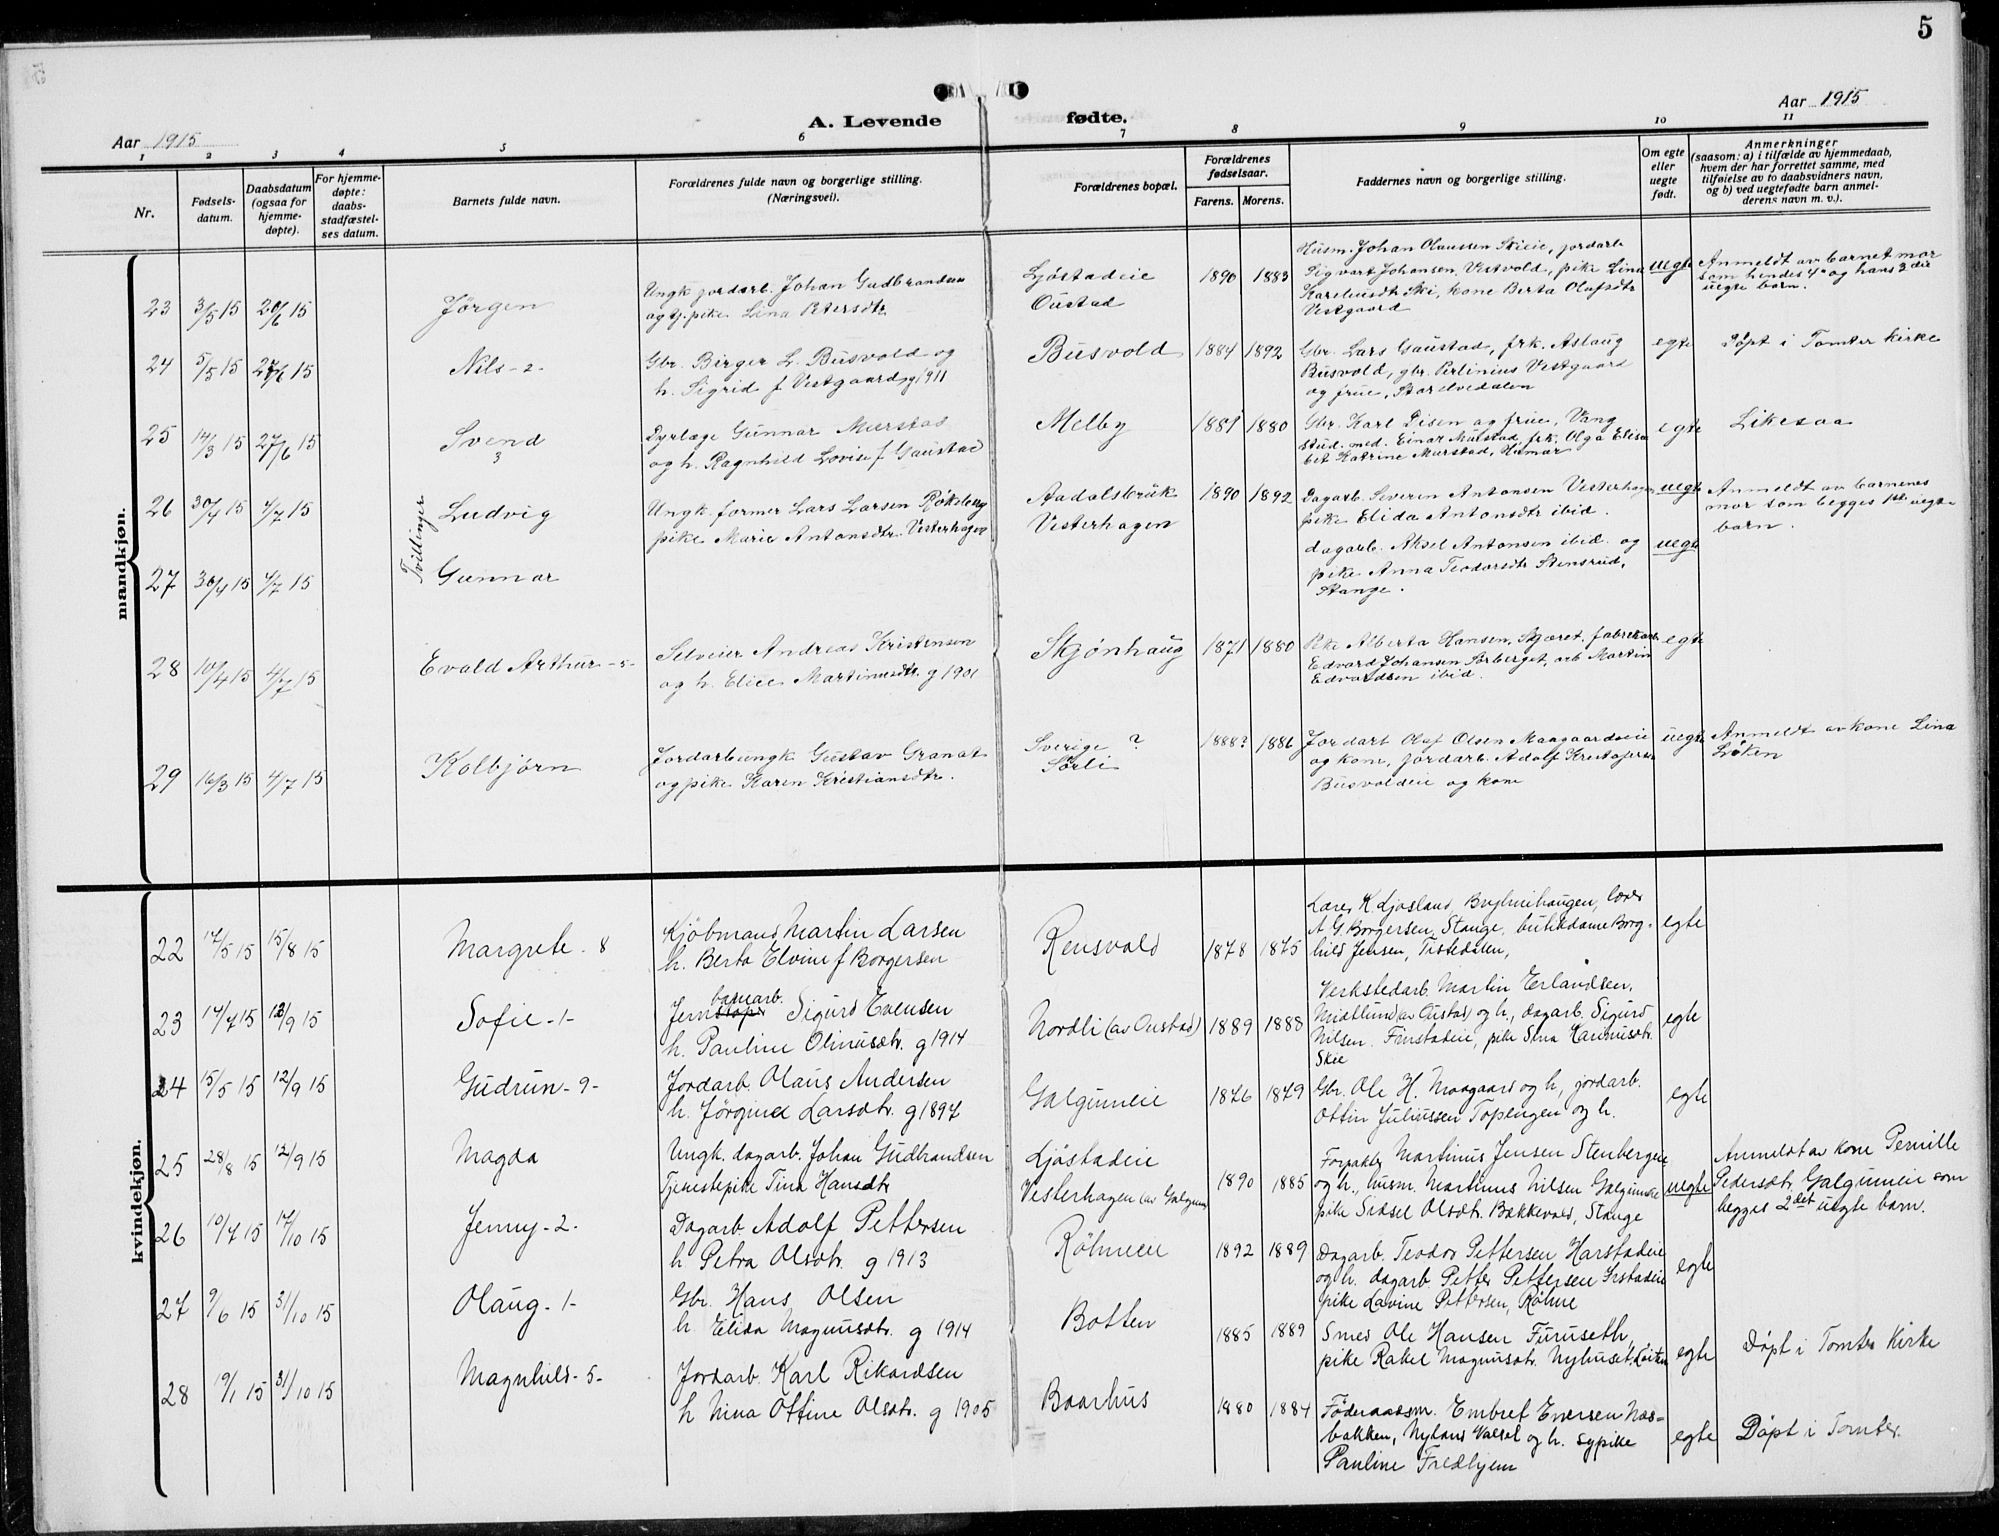 5
Aar 1915
A. Levende fødte.
Aar 1915
1 2 3 4 5 6 7 8 9 10 11
Nr.
Fødselsdatum.
Daabsdatum (ogsaa for hjemmedøpte).
For hjemmedøpte: daabsstadfæstelses datum.
Barnets fulde navn.
Forældrenes fulde navn og borgerlige stilling. (Næringsvei).
Forældrenes bopæl.
Forældrenes fødselsaar.
Farens. Morens.
Faddernes navn og borgerlige stilling.
Om egte eller uegte født.
Anmerkninger
(saasom: a) i tilfælde av hjemmedaab, hvem der har forrettet samme, med tilføielse av to daabsvidners navn, og b) ved uegtefødte barn anmelderens navn m. v.).
mandkjøn.
23 3/5 15 20/6 15 Jörgen
Ungk. jordarb. Johan Gudbrandsen
og tj. pike Lina Petersdtr
Ljöstadeie
Oustad
1890 1883
Husm. Johan Olaussen Skieie, jordarb
Sigvart Johansen, Vestvold, pike Lina
Kareliusdtr Ski, kone Berta Olafsdtr
Vestgaard
uegte
Anmeldt av barnet mor
som hendes 4de og hans 3die
uegte barn.
24 5/5 15 27/6 15 Nils -2-
Gbr. Birger L. Busvold og
h. Sigrid f Vestgaard g 1911
Busvold
1884 1892
Gbr. Lars Gaustad, frk. Aslaug
Busvold, gbr. Perlinius Vestgaard
og frue, Storelvedalen
egte
Döpt i Tomter kirke
25 14/3 15 27/6 15 Svend
3
Dyrlæge Gunnar Mürstad
og h. Ragnhild Lovise f Gaustad
Melby
1881 1880
Gbr. Karl Disen og frue, Vang
stud. med. Einar Mürstad, frk. Olga Elisa
bet Katrine Mürstad, Hamar
egte
Likesaa
Tvillinger
26 30/4 15 4/7 15 Ludvig
Ungk. former Lars Larsen Rökeberg
pike Marie Antonsdtr. Vesterhagen
Aadalsbruk
Vesterhagen
1890 1892
Dagarb. Severin Antonsen Vesterhagen
pike Elida Antonsdtr ibid.
uegte
Anmeldt av barnenes
mor som begges 1ste uegte
barn.
27 30/4 15 4/7 15 Gunnar
dagarb. Aksel Antonsen ibid. og
pike Anna Teodorsdtr Stensrud,
Stange.
uegte
28 10/4 15 4/7 15 Evald Arthur -5-
Selveier Andreas Kristensen
og h. Elise Martinusdtr. g 1901
Skjönhaug
1871 1880
Pike Alberta Hansen, Skjæret, fabrikarb.
Edvard Johansen Sorberget, arb Martin
Edvardsen ibid.
egte
29 16/3 15 4/7 15 Kolbjörn
Jordarb ungk Gustav Granat
og pike Karen Kristiansdtr.
Sverige ?
Sörli
1888? 1886
Jordarb Olaf Olsen Maagaardseie
og kone, jordarb. Adolf Kristofersen
Busvoldeie og kone
uegte
Anmeldt av kone Lina
Löken
kvindekjøn.
22 17/5 15 15/8 15 Margrete - 8
Kjöbmand Martin Larsen
h. Berta Elvine f Borgersen
Rensvold
1878 1875
Lærer K. Ljosland, Bryhnihaugen, lærer
A G. Borgersen, Stange, butikdame Borg-
hild Jensen, Tistedalen,
egte
23 14/7 15 12/9 15 Sofie -1-
banearb.
Jern Sigurd Evensen
h. Pauline Olinusdtr. g 1914
Nordli (av Oustad)
1889 1888
Verkstedarb. Martin Erlandsen,
Midtlund (av Oustad) og h, dagarb. Sigurd
Nilsen Finstadeie, pike Sina Hansinusdtr.
Skie
egte
24 15/5 15 12/9 15 Gudrun -9-
Jordarb. Olaus Andersen
h. Jörgine Larsdtr. g 1897
Galguneie
1876 1879
Gbr. Ole H. Maagaard og h, jordarb.
Ottin Juliussen Topengen og h.
egte
25 28/8 15 12/9 15 Magda
Ungk. dagarb. Johan Gudbrandsen
Tjenestepike Tina Hansdtr
Ljöstadeie
Vesterhagen (av Galgum)
1890 1885
Forpakter Martinus Jensen Stenbergeie
og h., husm. Martinus Nilsen Galguneie
pike Sidsel Olsdtr. Bakkevold, Stange
uegte
Anmeldt av kone Pernille
Pedersdtr Galguneie som
begges 2det uegte barn.
26 10/7 15 17/10 15 Jenny -2-
Dagarb. Adolf Pettersen
h Petra Olsdtr. g 1913
Röhneeie
1892 1889
Dagarb. Teodor Pettersen Harstadeie
og h. dagarb. Petter Pettersen Irstadeie
pike Lavine Pettersen, Röhne
egte
27 9/6 15 31/10 15 Olaug -1-
Gbr. Hans Olsen
h Elida Magnusdtr. g 1914
Botten
1885 1889
Smed Ole Hansen Furuseth,
pike Rakel Magnusdtr. Nyhuset, Löiten
egte
Döpt i Tomter Kirke
28 9/1 15 31/10 15 Magnhild -5-
Jordarb. Karl Rikardsen
h Nina Ottine Olsdtr. g 1905
Baarhus
1880 1884
Föderaadsm. Embret Eversen Næs-
bakken, Nylans Valsel og h. sypike
Pauline Fredhjem
egte
Döpt i Tomter.